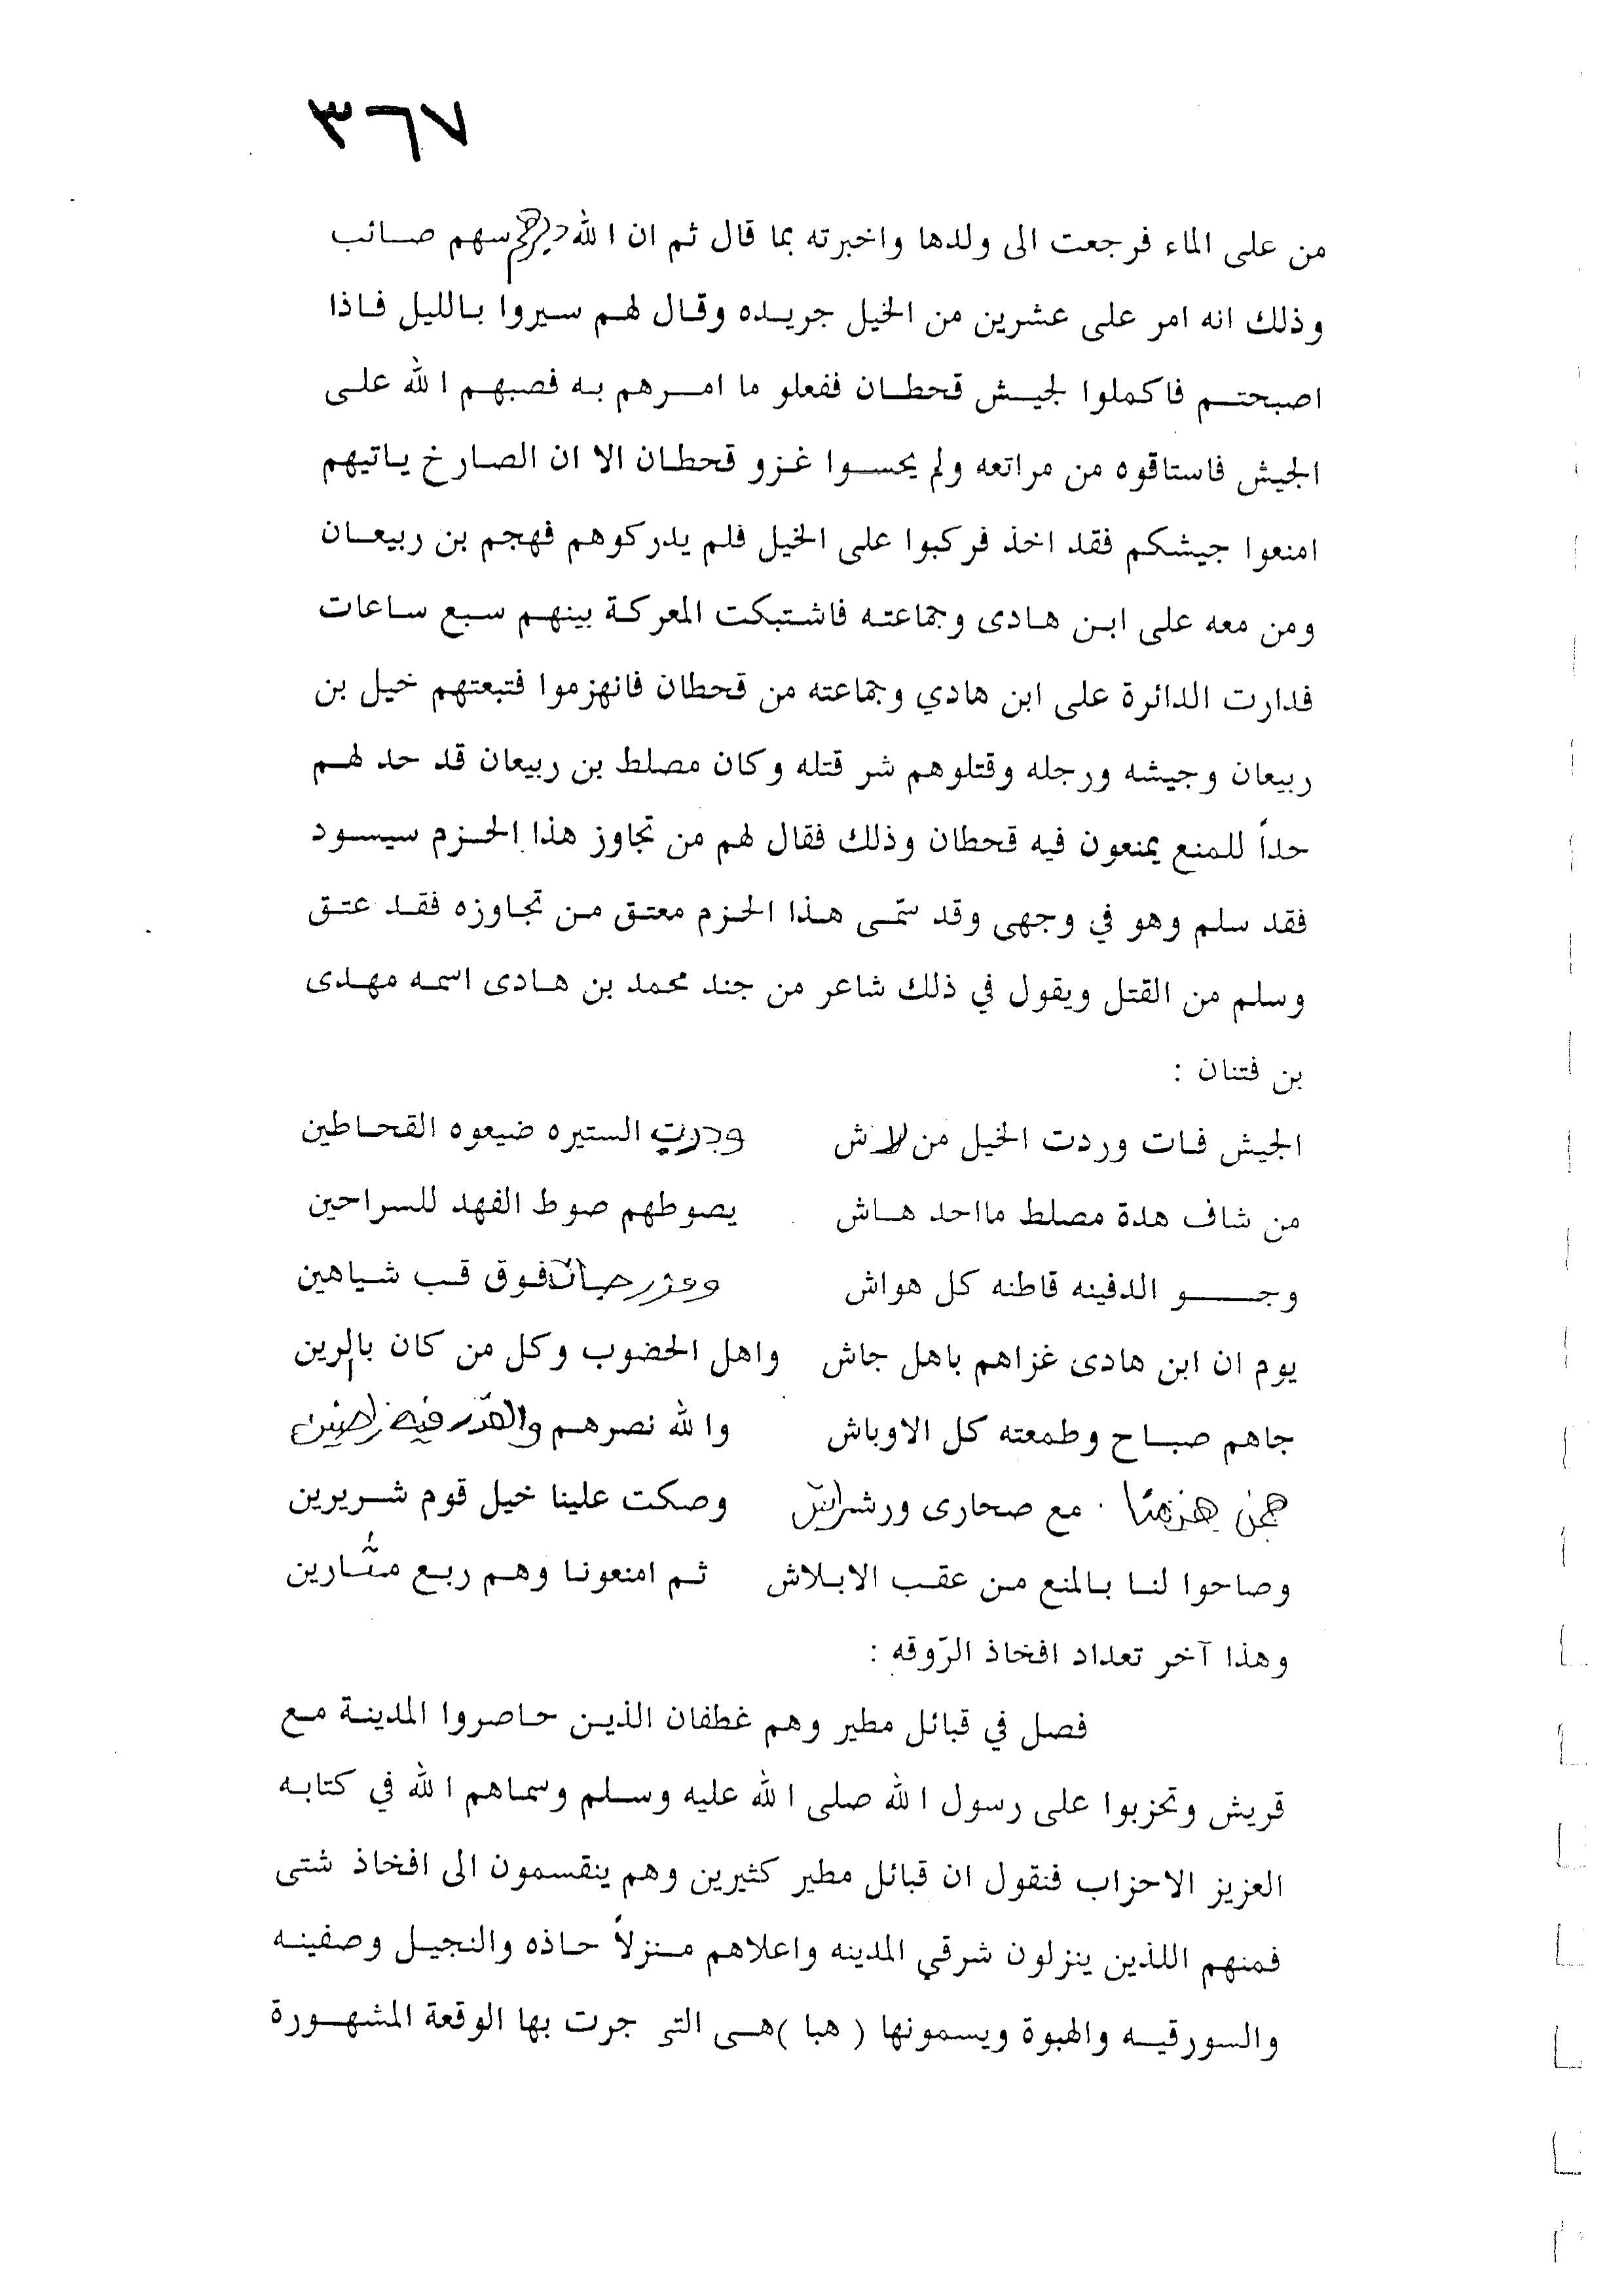 ٣٦٧
من على الماء فرجعت الى ولدها واخبرته بما قال ثم ان الله سهم صائب
وذلك انه امر على عشرين من الخيل جريده وقال لهم سيروا بالليل فاذا
اصبحتم فاكملوا لجيش قحطان ففعلو ما امرهم به فصبهم الله على
الجيش فاستاقوه من مراتعه ولم يحسوا غزو قحطان الا ان الصارخ ياتيهم
امنعوا جيشكم فقد اخذ فركبوا على الخيل فلم يدركوهم فهجم بن ربيعان
ومن معه على ابن هادى وجماعته فاشتبكت المعركة بينهم سبع ساعات
فدارت الدائرة على ابن هادي وجماعته من قحطان فانهزموا فتبعتهم خيل بن
ربيعان وجيشه ورجله وقتلوهم شر قتله وكان مصلط بن ربيعان قد حد لهم
حداً للمنع يمنعون فيه قحطان وذلك فقال لهم من تجاوز هذا الحزم سيسود
فقد سلم وهو في وجهى وقد سمّى هذا الحزم معتق من تجاوزه فقد عتق
وسلم من القتل ويقول في ذلك شاعر من جند محمد بن هادى اسمه مهدى
بن فتنان :
الجيش فات وردت الخيل من لاش وجرت الستيره ضيعوه القحاطين
من شاف هدة مصلط مااحد هاش يصوطهم صوط الفهد للسراحين
وجو الدفينه قاطنه كل هواش فوق قب شياهين
يوم ان ابن هادى غزاهم باهل جاش واهل الحضوب وكل من كان بالرين
جاهم صباح وطمعته كل الاوباش والله نصرهم
مع صحارى ورشراش وصكت علينا خيل قوم شريرين
وصاحوا لنا بالمنع من عقب الابلاش ثم امنعونا وهم ربع مشارين
وهذا آخر تعداد افخاذ الرّوقه :
فصل في قبائل مطير وهم غطفان الذين حاصروا المدينة مع
قريش وتحزبوا على رسول الله صلى الله عليه وسلم وسماهم الله في كتابه
العزيز الاحزاب فنقول ان قبائل مطير كثيرين وهم ينقسمون الى افخاذ شتى
فمنهم اللذين ينزلون شرقي المدينه واعلاهم منزلاً حاذه والنجيل وصفينه
والسورقيه والهبوة ويسمونها ( هبا )هى التى جرت بها الوقعة المشهورة